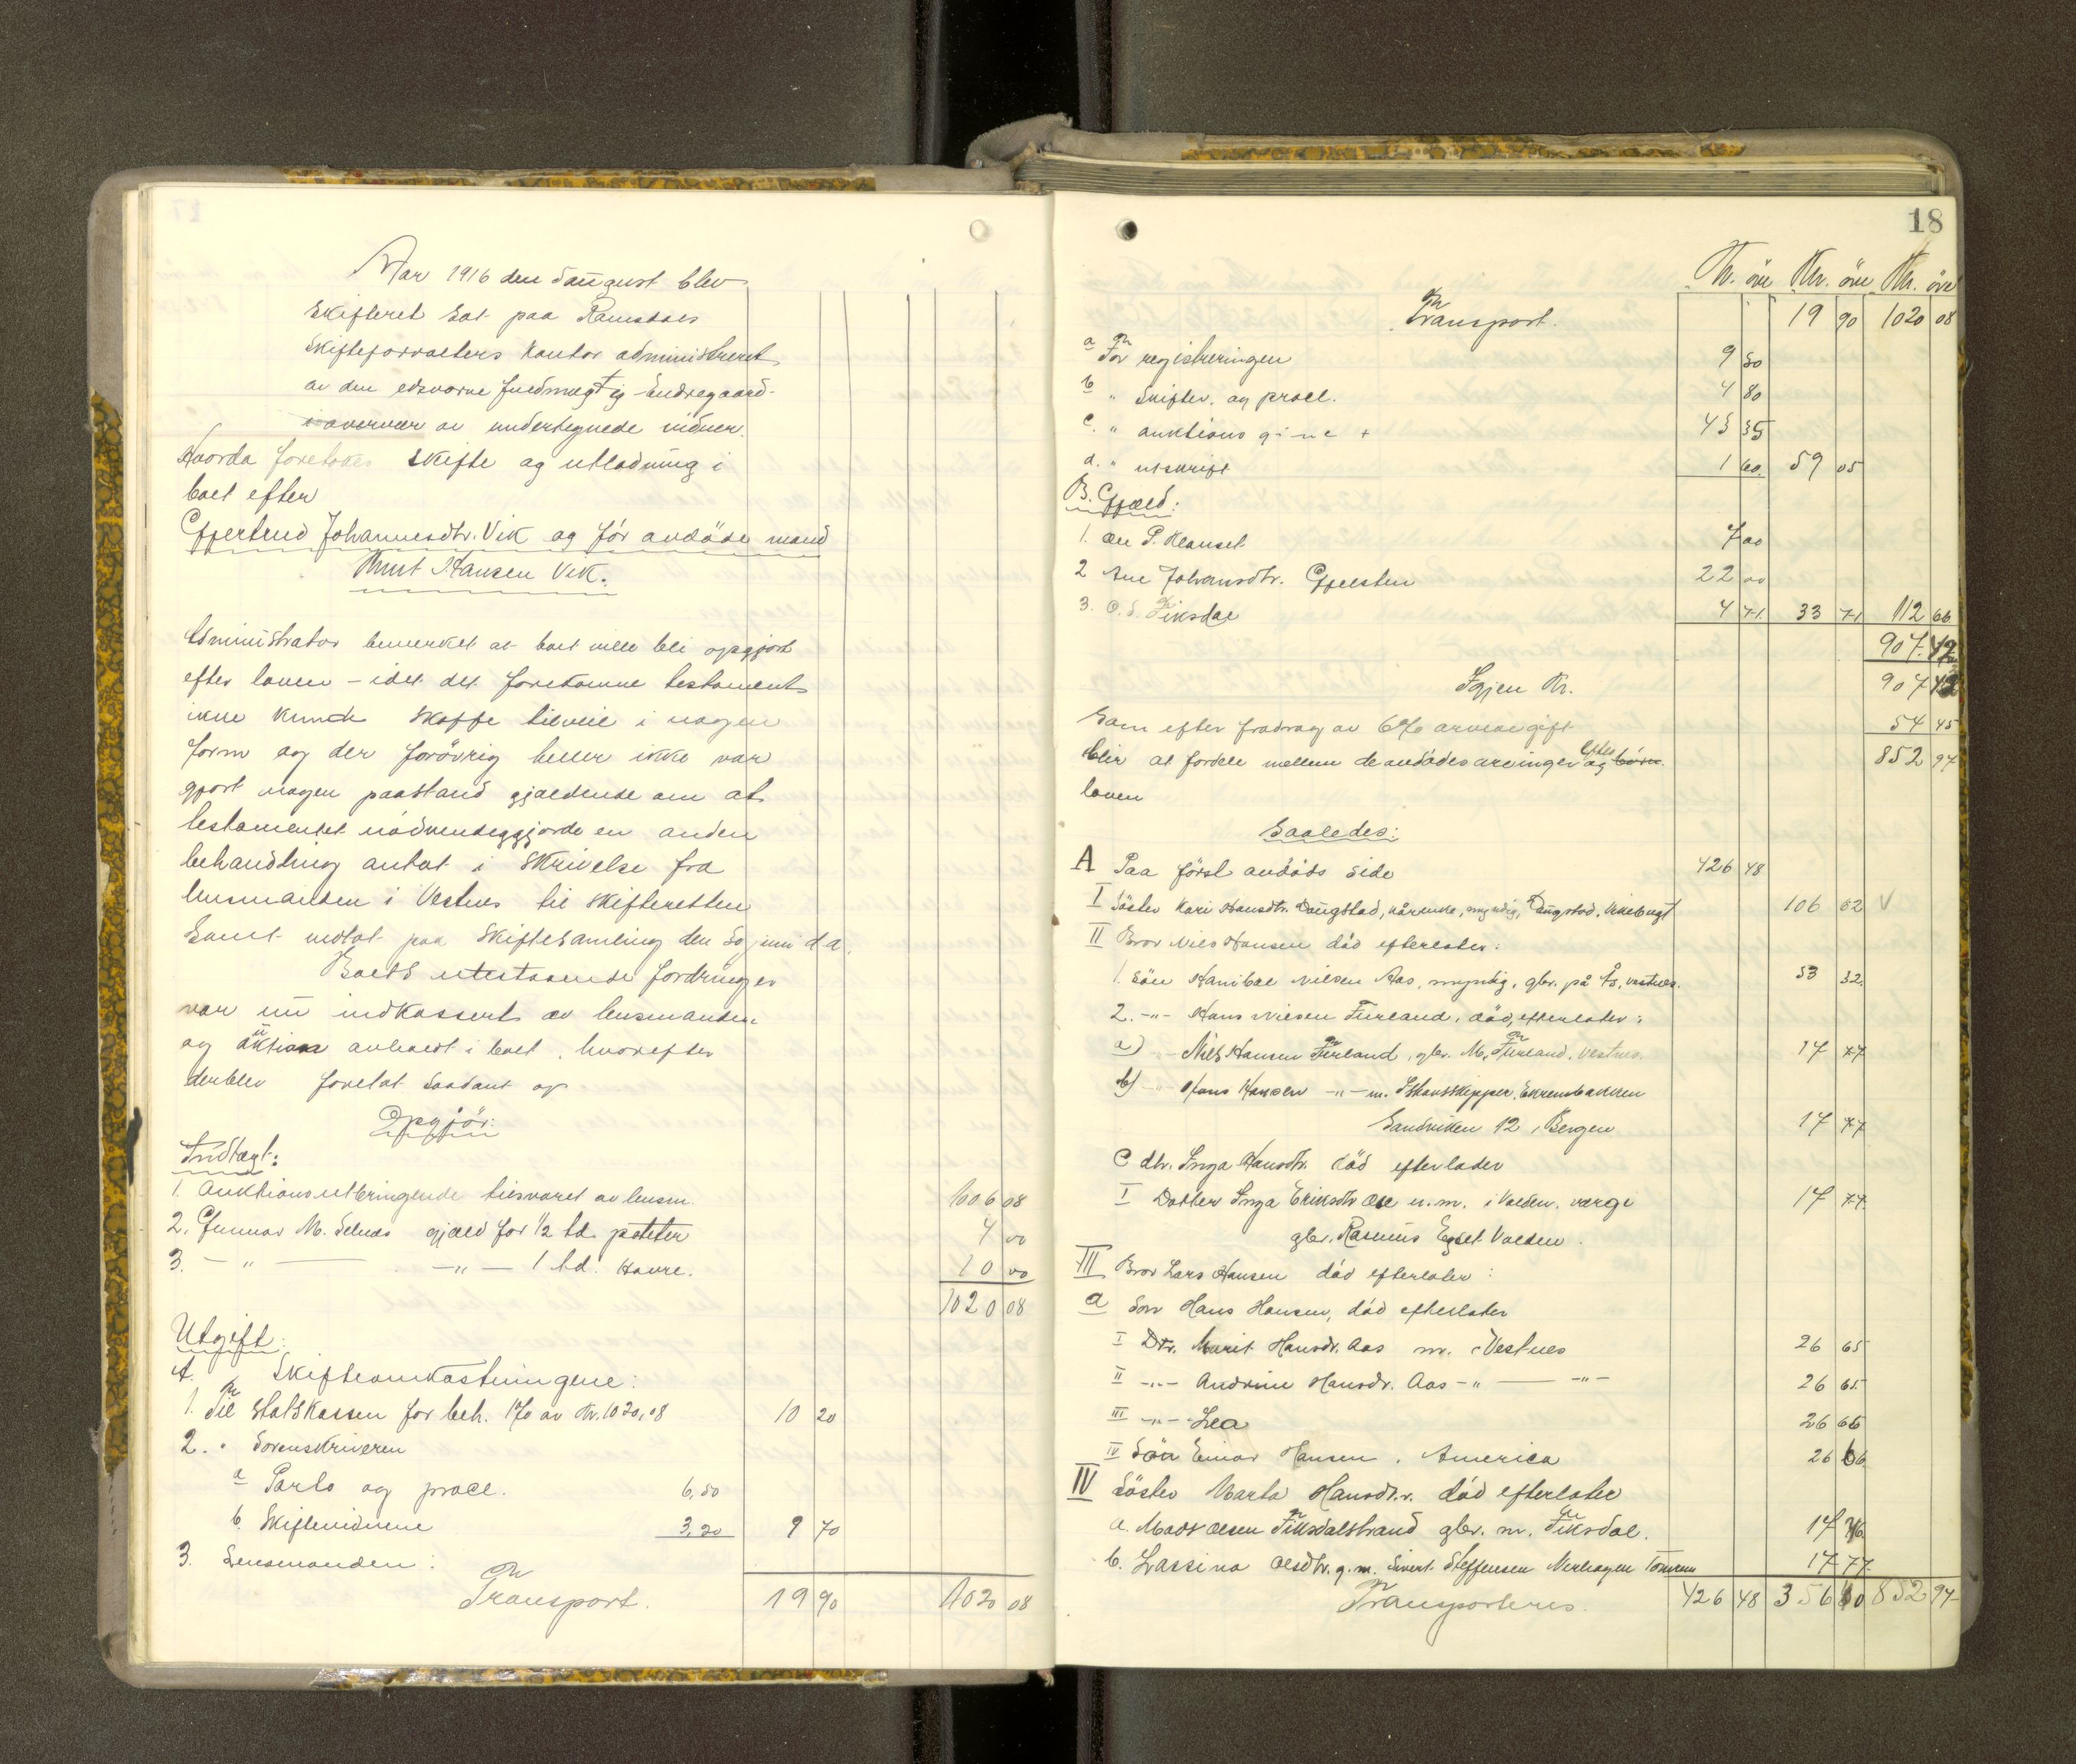 Aar 1916 den 5 august blev
Skifteret sat paa Ramsdals
Skifteforvalters kontor administreret
av den edsvorne fuldmægtig Endregaard
i overvær av undertegnede vidner.
Hvorda foretokes skifte og utlodning i
boet efter
Gjertrud Johannesdtr. Vik og før avdøde mand
Knut Hansen Vik.
Administrator bemerket at boet ville bli opgjort
efter loven – idet det forekomne testament
ikke kunde skaffe tilveie i nogen
form og der forøvrig heller ikke var
gjort nogen paastand gjældende om at
testamentet nødvendeggjorde en anden
behandling antat i skrivelse fra
lensmanden i Vestnes til skifteretten
Samt vedtat paa skiftesamling den 30 juni d.a.
Boets utestaaende fordringer
var nu indkassert av lensmanden
og auktion avholdt i boet, hvorefter
derblev foretat saadant op
Opgjør:
Indtægt:
1. Auktionsutbringende tilsvaret av lensm. 1006 08
2. Gunnar M. Selnæs gjæld for 1/2 td. poteter 4 00
3. – " – – " – 1 td. Havre. 10 00
1020 08
Utgift:
A. Skifteomkostningene:
1. Til Statskassen for beh. 1% av Kr. 1020,08 10 20
2. " Sorenskriveren
a Porto og procl. 6,50
b. Skiftevidnene 3,20 9 70
3. Lensmanden:
Transport. 19 90 1020 08
18
Kr. øre Kr. øre Kr. øre
Transport. 19 90 1020 08
a For registreringen 9 30
b " Skiftev. og procl. 4 80
c. " auktions 43 35
d. " utskrift 1 60 59 05
B. Gjæld:
1. Ole P. Klauset 7 00
2 Ane Johansdtr. Gjelsten 22 00
3. O. S. Fiksdal 4 71 33 71 112 66
907 42
Igjen Kr. 907 42
Som efter fradrag av 6% arveavgift 54 45
blir at fordele mellem de avdødes arvinger efter og børn. 852 97
loven
Saaledes:
A Paa først avdøds side 426 48
I Søster Kari Hansdtr. Daugstad, kårenke, myndig, Daugstad, Vikebugt 106 62 V
II Bror Nils Hansen død efterlater:
1. Søn Hanibal Nilsen Aas, myndig, gbr. på Ås, Vestnes. 53 32
2. –"– Hans Nilsen Furland, død, efterlater:
a) " Nils Hansen Furland, gbr. M, Furland, Vestnes. 17 77
b) –"– Hans Hansen –"– m. Skansskipper, Ekrenbakken
Sandviken 12, Bergen 17 77
C dtr. Inga Hansdtr. død efterlater
I Datter Inga Eriksdtr. Ose u.m. i Volden. værge 17 77
gbr. Rasmus Egset Volden.
III Bror Lars Hansen død efterlater:
a Søn Hans Hansen, død efterlater
I Dtr. Marit Hansdr. Aas m. i Vestnes 26 65
II –"– Andrine Hansdr. Aas –"– –"– 26 65
III –"– Lea 26 66
IV Søn Einar Hansen, America 26 66
IV Søster Marta Hansdtr. død efterlater
a. Mads Olsen Fiksdalstrand gbr. m. Fiksdal. 17 76
b. Lassina Olsdtr. g.m. Sivert Steffensen Nerhagen Tomrem 17 77
Transporteres. 426 48 356 60 852 97